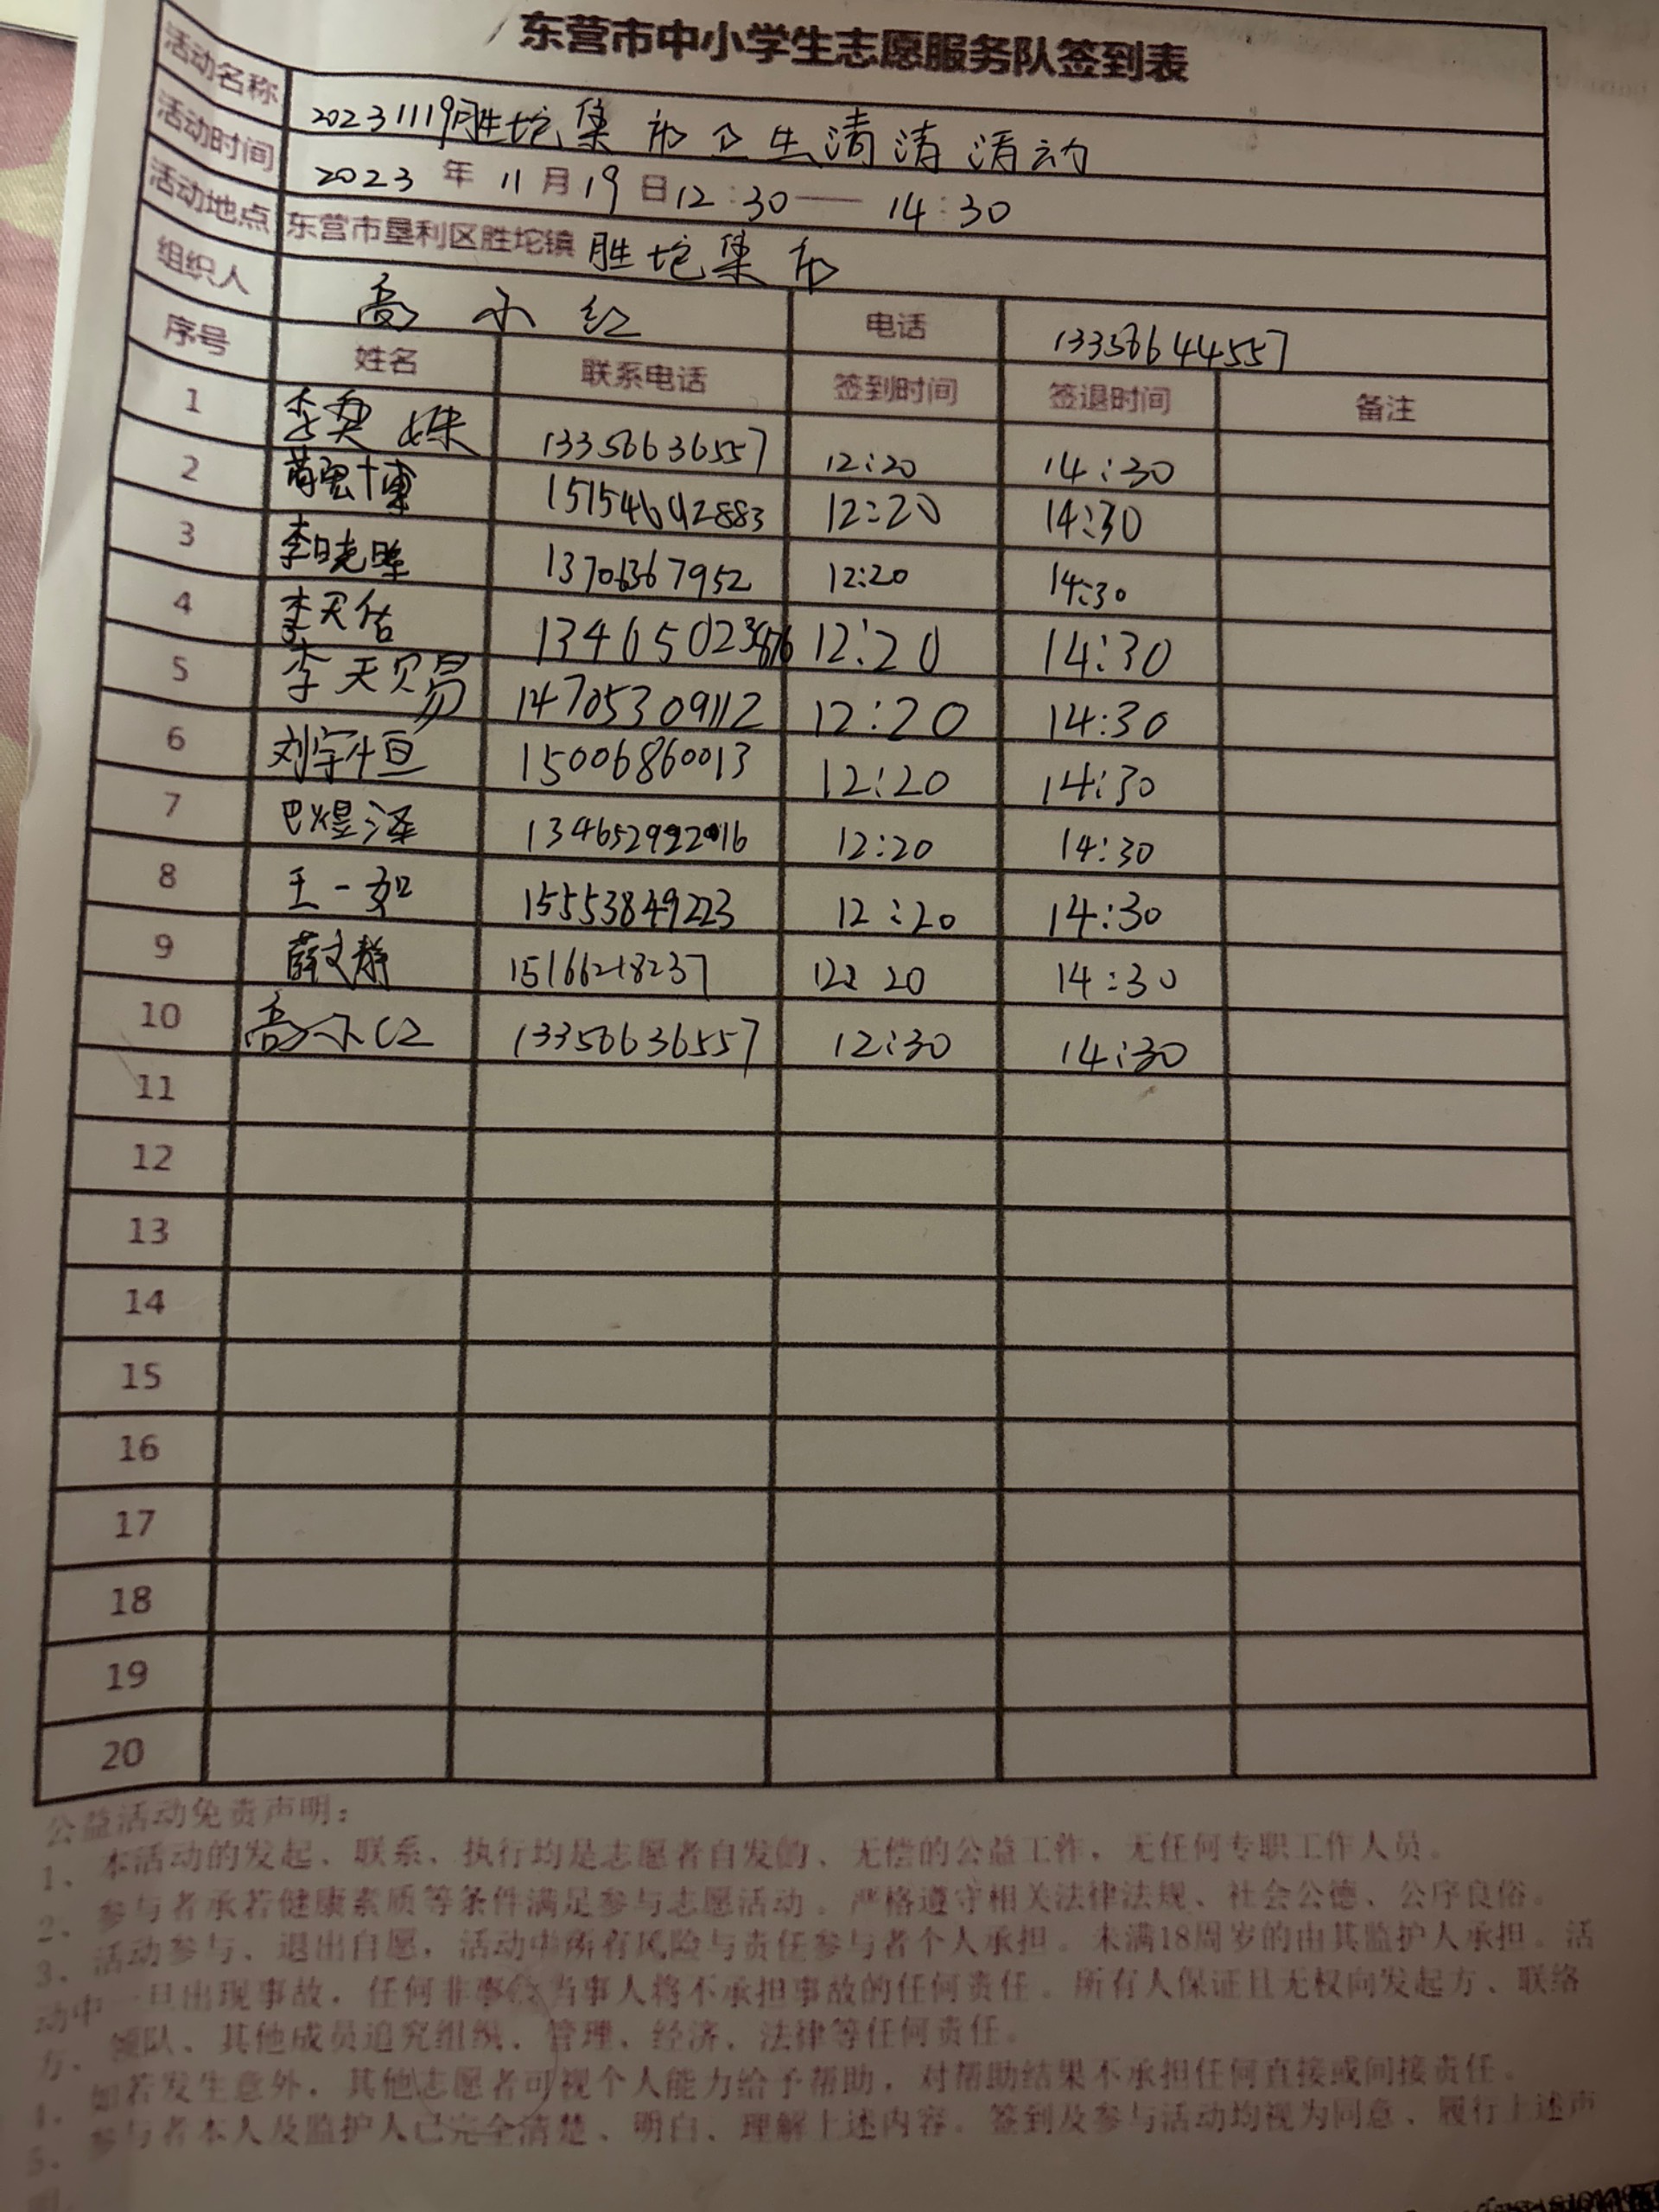 东营市中小学生志愿服务队签到表
活动名称 20231119胜坨集市卫生清洁活动
活动时间 2023 年 11 月 19 日 12:30—14:30
活动地点 东营市垦利区胜坨镇 胜坨集市
组织人 高小红 电话 13356644557
序号 姓名 联系电话 签到时间 签退时间 备注
1 李奕姝 13356636557 12:20 14:30
2 12:20 14:30
3 李晓 13706367952 12:20 14:30
4 李天佑 12:20 14:30
5 李天赐 14705309112 12:20 14:30
6 刘宇恒 15006860013 12:20 14:30
7 巴煜泽 12:20 14:30
8 王一如 15553849223 12:20 14:30
9 薛文静 15166218237 12:20 14:30
10 高小红 13356636557 12:30 14:30
11
12
13
14
15
16
17
18
19
20
公益活动免责声明：
1、本活动的发起、联系、执行均是志愿者自发的、无偿的公益工作，无任何专职工作人员。
2、参与者承若健康素质等条件满足参与志愿活动。严格遵守相关法律法规、社会公德、公序良俗。
3、活动参与、退出自愿，活动中所有风险与责任参与者个人承担。未满18周岁的由其监护人承担。活
动中一旦出现事故，任何非事故当事人将不承担事故的任何责任。所有人保证且无权向发起方、联络
方、领队、其他成员追究组织、管理、经济、法律等任何责任。
4、如若发生意外，其他志愿者可视个人能力给予帮助，对帮助结果不承担任何直接或间接责任。
5、参与者本人及监护人已完全清楚、明白、理解上述内容。签到及参与活动均视为同意、履行上述声
明